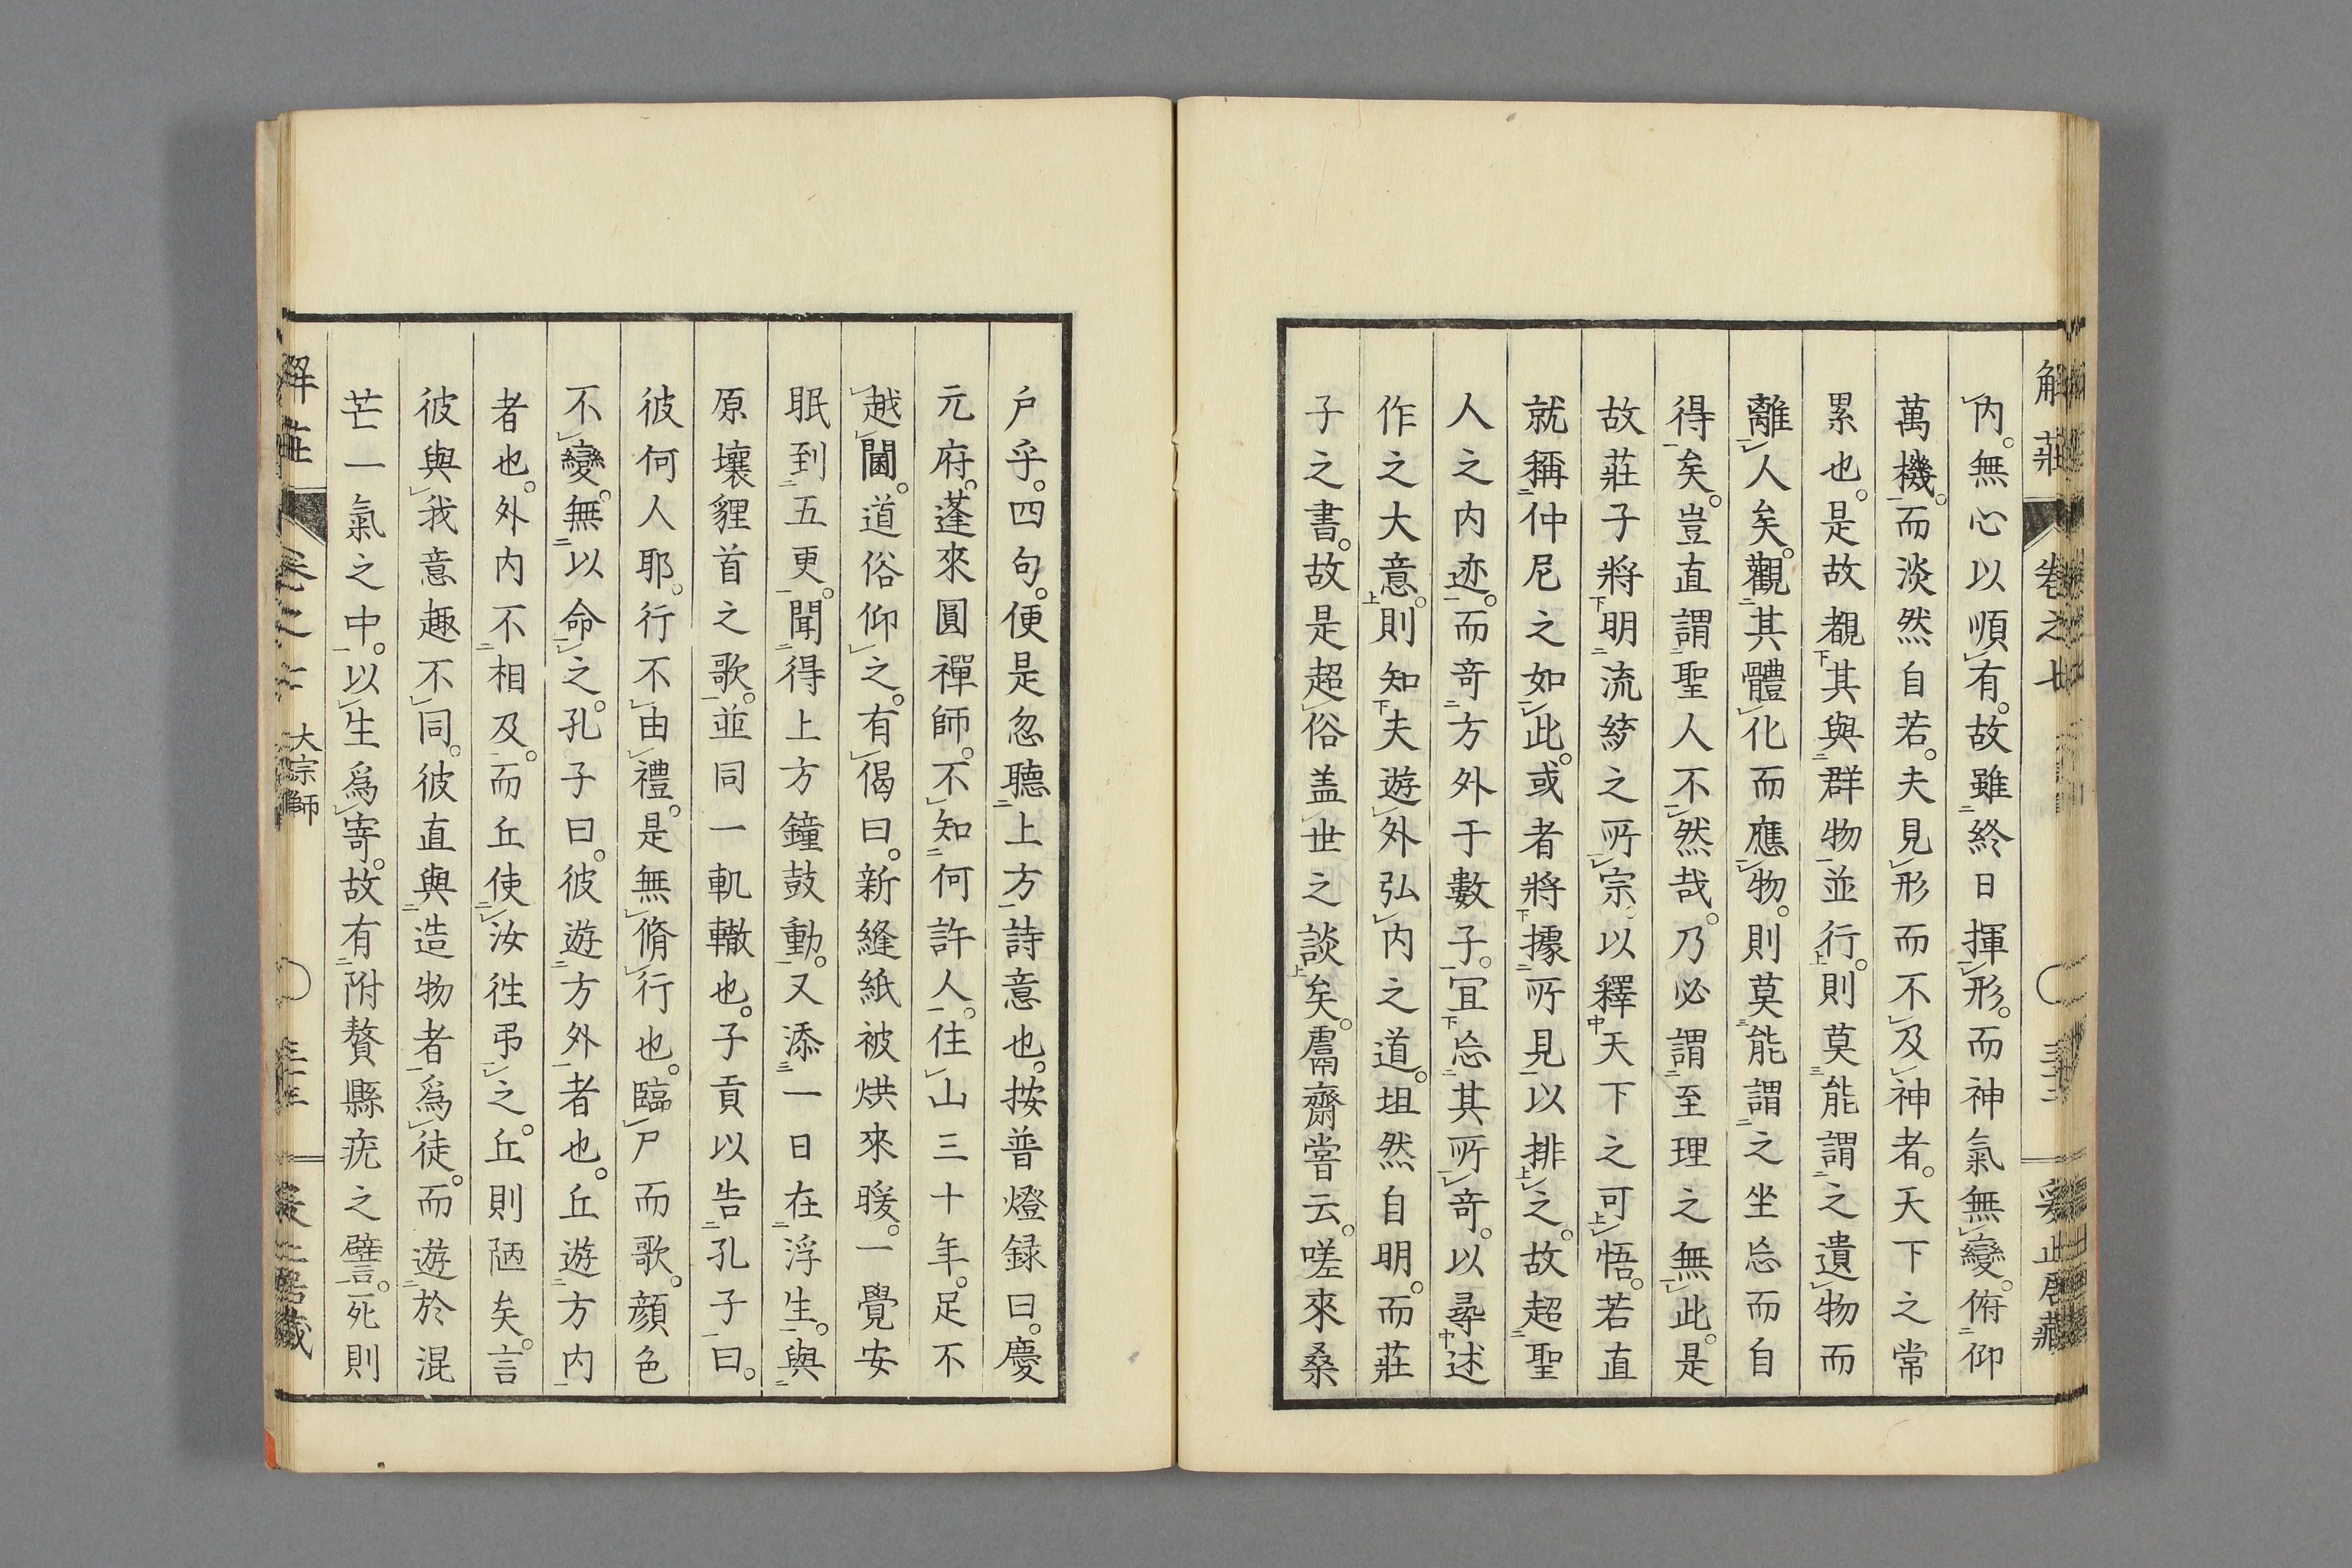 解莊 卷之七
内。無心以順有。故雖終日揮形。而神氣無變。俯仰
萬機。而淡然自若。夫見形而不及神者。天下之常
累也。是故覩其與群物並行。則莫能謂之遺物而
離人矣。觀其體化而應物。則莫能謂之坐忘而自
得矣。豈直謂聖人不然哉。乃必謂至理之無此。是
故莊子將明流統之所宗。以釋天下之可悟。若直
就稱仲尼之如此。或者將據所見以排之。故超聖
人之内迹。而竒方外于數子。宜忘其所竒。以尋述
作之大意。則知夫遊外弘内之道。坦然自明。而莊
子之書。故是超俗盖世之談矣。鬳齋嘗云。嗟來桑
戶乎。四句。便是忽聽上方詩意也。按普燈録曰。慶
元府。蓬來圓禪師。不知何許人。住山三十年。足不
越閫。道俗仰之。有偈曰。新縫紙被烘來暖。一覺安
眠到五更。聞得上方鐘鼓動。又添一日在浮生。與
原壤貍首之歌。並同一軌轍也。子貢以告孔子曰。
彼何人耶。行不由禮。是無脩行也。臨尸而歌。顔色
不變。無以命之。孔子曰。彼遊方外者也。丘遊方内
者也。外内不相及。而丘使汝徃弔之。丘則陋矣。言
彼與我意趣不同。彼直與造物者爲徒。而遊於混
芒一氣之中。以生爲寄。故有附贅縣疣之譬。死則
大宗師